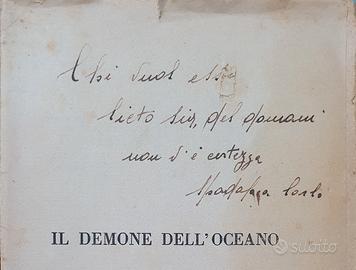 Chi vuol esse
lieto sia, del domani
non v'è certezza
Carlo
IL DEMONE DELL'OCEANO
subito